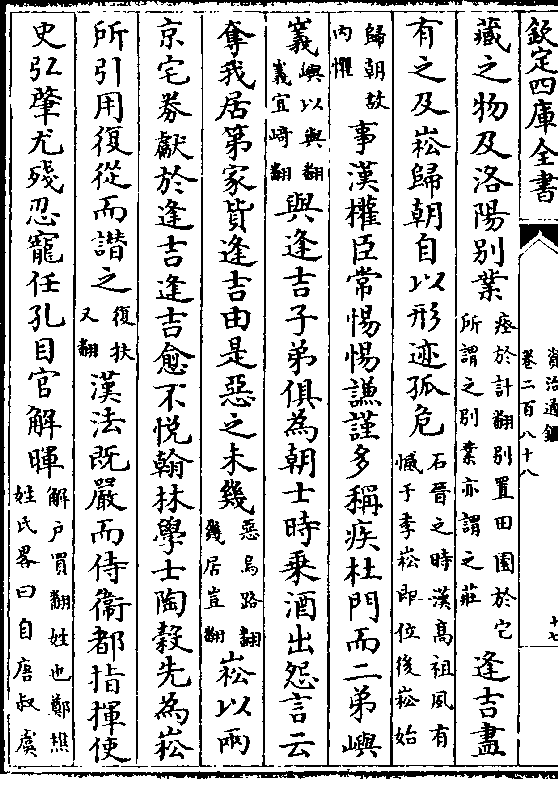 欽定四庫全書
資治通鑑
卷二百八十八
十七
藏之物及洛陽别業瘞於計翻别置田園於它所謂之别業亦謂之莊逢吉盡
有之及崧歸朝自以形迹孤危石晉之時漢高祖夙有憾于李崧即位後崧始
歸朝故内懼事漢權臣常惕惕謙謹多稱疾杜門而二弟嶼
嶬嶼以與翻嶬宜崎翻與逢吉子弟俱為朝士時乘酒出怨言云
奪我居第家貲逢吉由是惡之未幾惡烏路翻幾居豈翻崧以兩
京宅劵獻於逢吉逢吉愈不悦翰林學士陶穀先為崧
所引用復從而譖之復扶又翻漢法既嚴而侍衞都指揮使
史弘肇尤殘忍寵任孔目官解暉解户買翻姓也鄭樵姓氏畧曰自唐叔虞